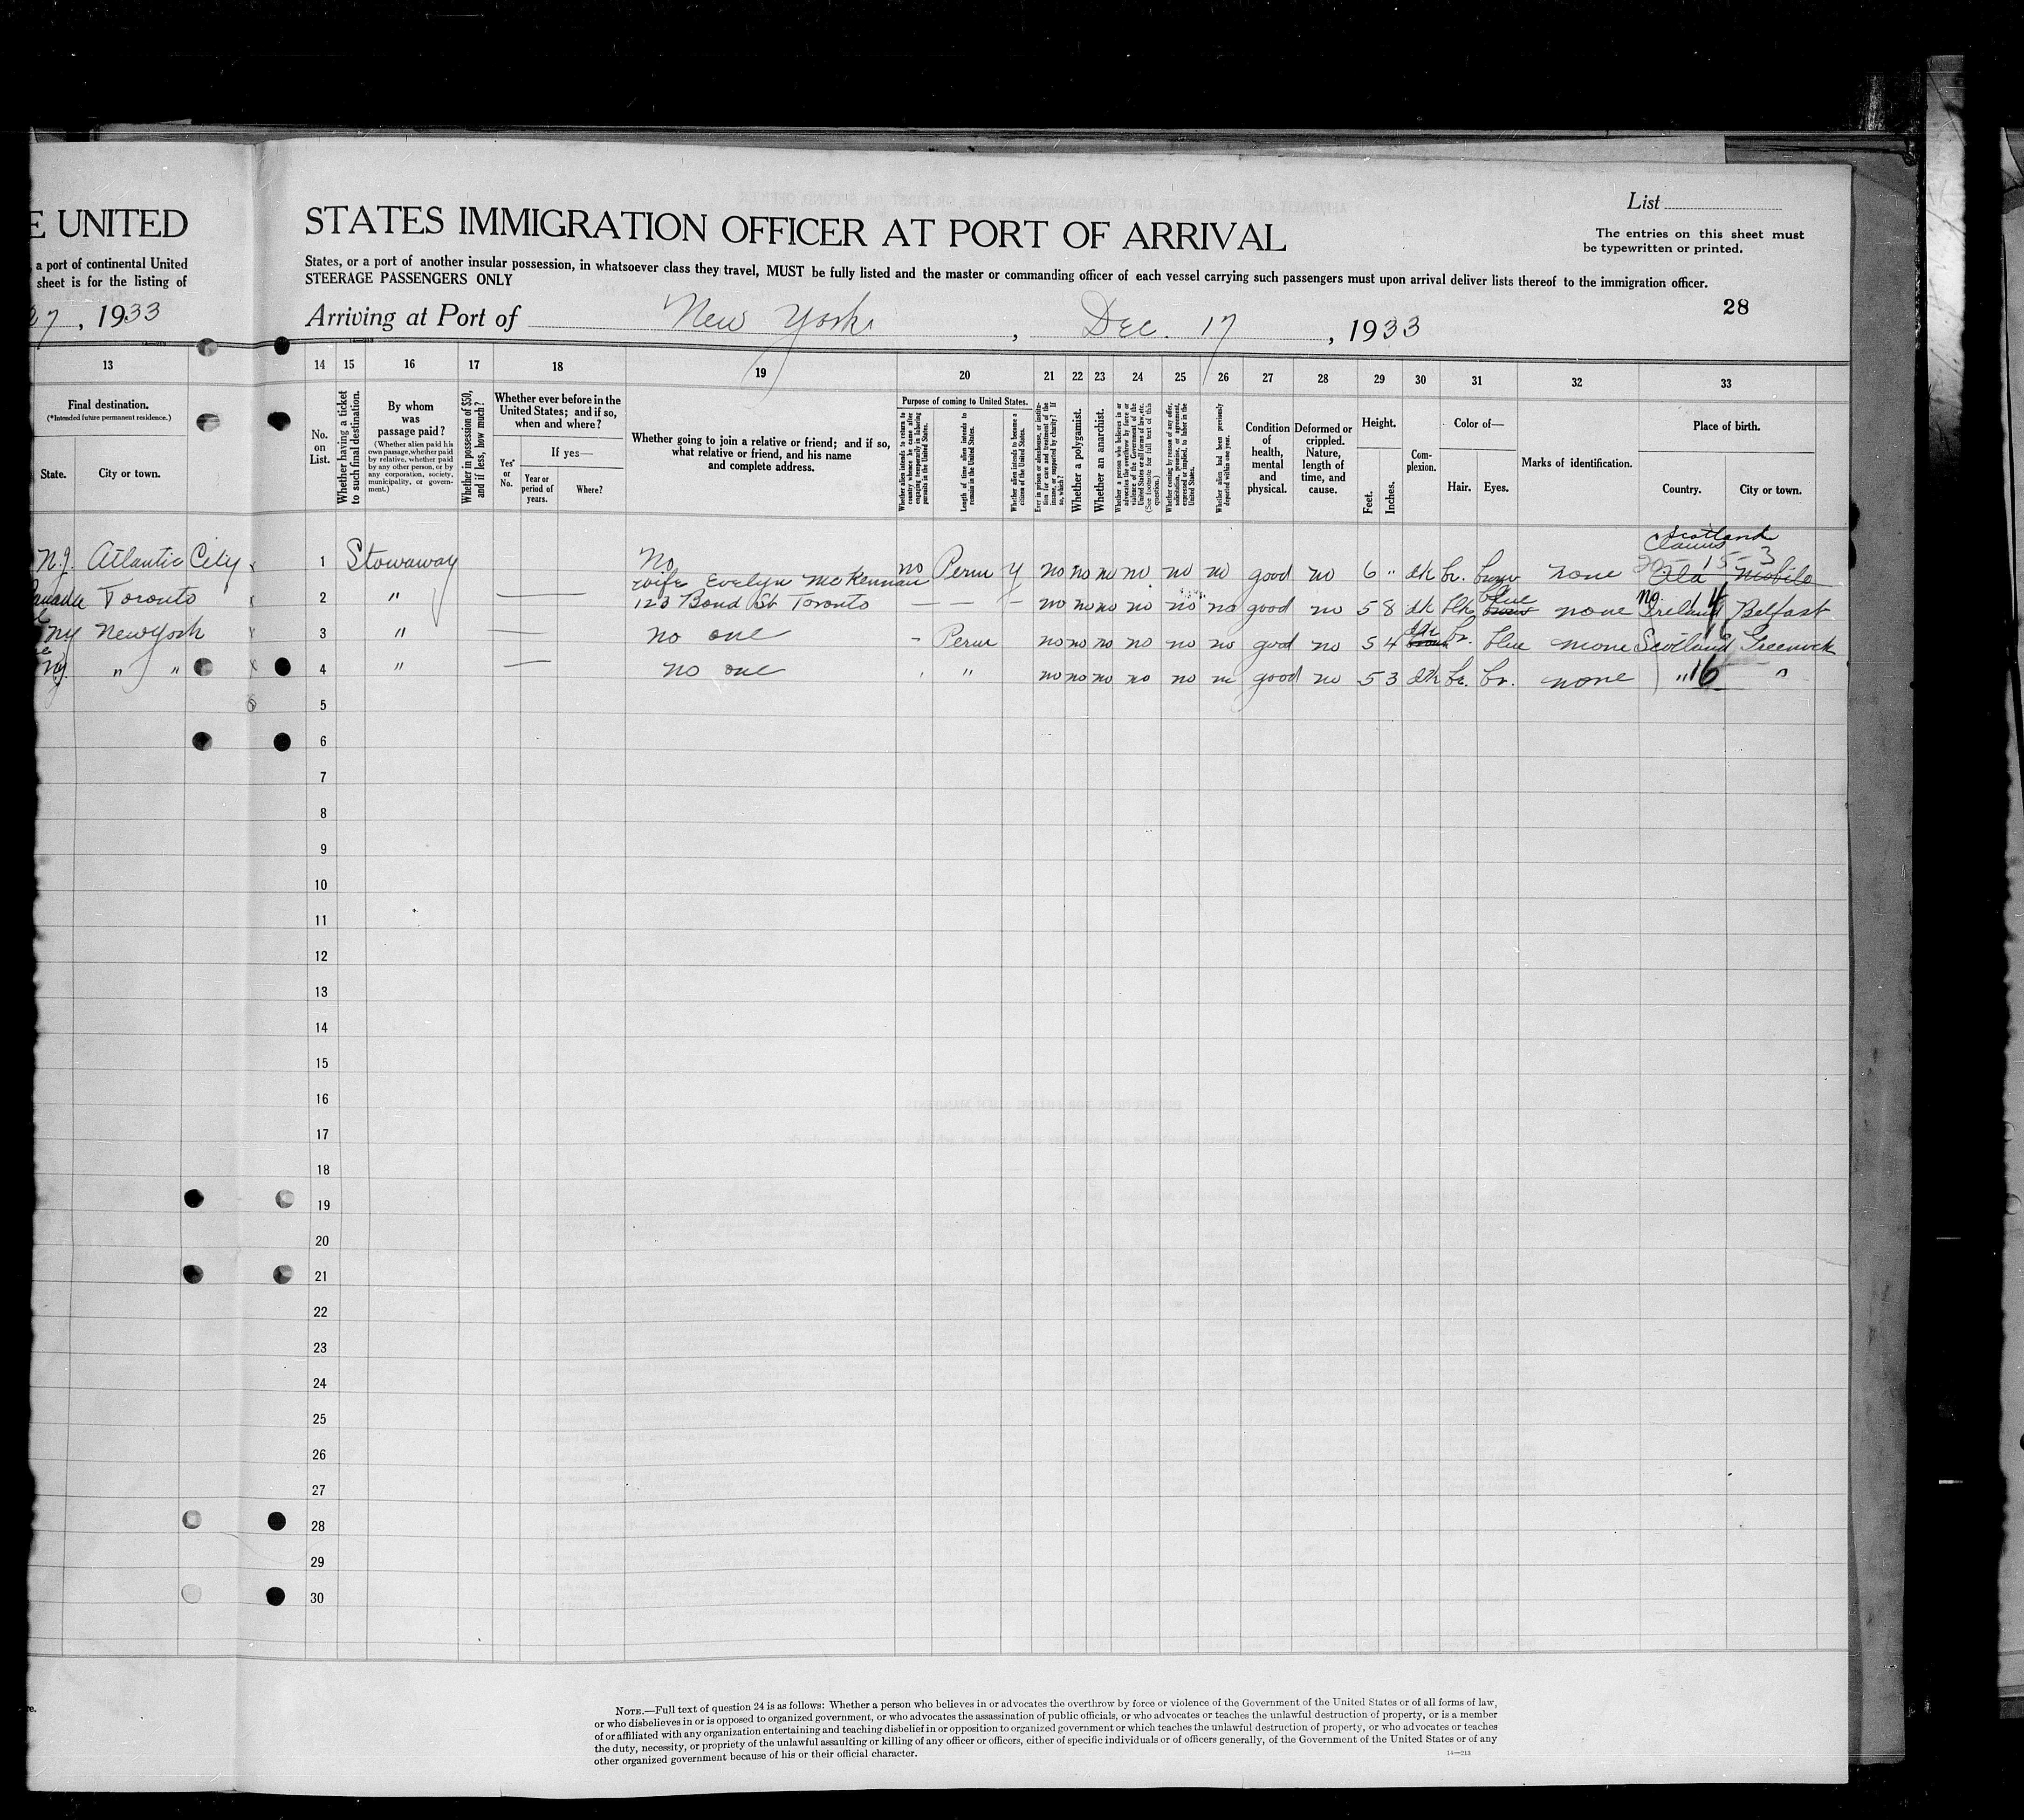 E UNITED STATES IMMIGRATION OFFICER AT PORT OF ARRIVAL
List
The entries on this sheet must
be typewritten or printed.
a port of continental United States, or a port of another insular possession, in whatsoever class they travel, MUST be fully listed and the master or commanding officer of each vessel carrying such passengers must upon arrival deliver lists thereof to the immigration officer.
sheet is for the listing of STEERAGE PASSENGERS ONLY
27, 1933 Arriving at Port of New York, Dec. 17, 1933
28
13 14 15 16 17 18 19 20 21 22 23 24 25 26 27 28 29 30 31 32 33
Final destination.
(*Intended future permanent residence.)
State.
City or town.
No.
on
List.
Whether having a ticket
to such final destination.
By whom
was
passage paid?
(Whether alien paid his
own passage, whether paid
by relative, whether paid
by any other person, or by
any corporation, society,
municipality, or govern-
ment.)
Whether in possession of $50,
and if less, how much?
Whether ever before in the
United States; and if so,
when and where?
Yes
or
No.
If yes—
Year or
period of
years.
Where?
Whether going to join a relative or friend; and if so,
what relative or friend, and his name
and complete address.
Purpose of coming to United States.
Whether alien intends to return to
country whence he came after
engaging temporarily in laboring
pursuits in the United States.
Length of time alien intends to
remain in the United States.
Whether alien intends to become a
citizen of the United States.
Ever in prison or almshouse, or institu-
tion for care and treatment of the
insane, or supported by charity? If
so, which?
Whether a polygamist.
Whether an anarchist.
Whether a person who believes in or
advocates the overthrow by force or
violence of the Government of the
United States or all forms of law, etc.
(See footnote for full text of this
question.)
Whether coming by reason of any offer,
solicitation, promise, or agreement,
expressed or implied, to labor in the
United States.
Whether alien had been previously
deported within one year.
Condition
of
health,
mental
and
physical.
Deformed or
crippled.
Nature,
length of
time, and
cause.
Height.
Feet.
Inches.
Com-
plexion.
Color of—
Hair.
Eyes.
Marks of identification.
Place of birth.
Country.
City or town.
Scotland
Claims
20-15-3
N.J. Atlantic City x 1 Stowaway No no Perm y no no no no no no good no 6 " dk br. brown none Ala Mobile
wife Evelyn McKennan
blue
Canada Toronto x 2 " 123 Bond St Toronto — — — no no no no no no good no 5 8 dk blk brown none No. Ireland Belfast
NY New York x 3 " no one - Perm no no no no no no good no 5 4 dk br. blue none Scotland Greenock
NY. " " x 4 " no one " no no no no no no good no 5 3 dk br. br. none " 16 "
5
6
7
8
9
10
11
12
13
14
15
16
17
18
19
20
21
22
23
24
25
26
27
28
29
30
NOTE.—Full text of question 24 is as follows: Whether a person who believes in or advocates the overthrow by force or violence of the Government of the United States or of all forms of law,
or who disbelieves in or is opposed to organized government, or who advocates the assassination of public officials, or who advocates or teaches the unlawful destruction of property, or is a member
of or affiliated with any organization entertaining and teaching disbelief in or opposition to organized government or which teaches the unlawful destruction of property, or who advocates or teaches
the duty, necessity, or propriety of the unlawful assaulting or killing of any officer or officers, either of specific individuals or of officers generally, of the Government of the United States or of any
other organized government because of his or their official character.
14—213